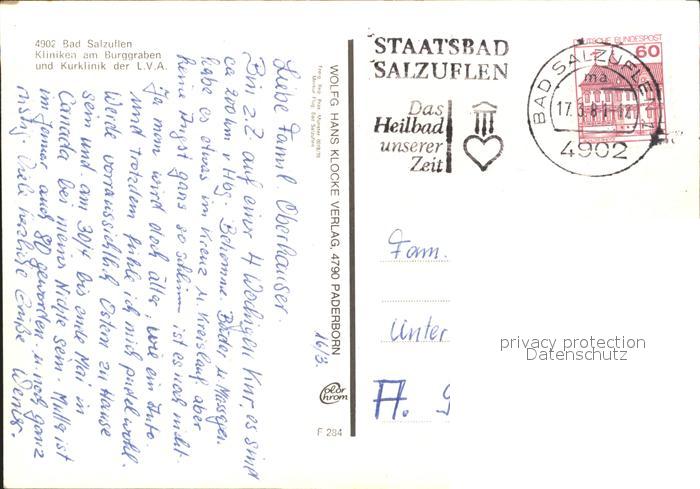 4902 Bad Salzuflen
Kliniken am Burggraben
und Kurklinik der L.V.A.
Liebe Famil. Oberhauser.
Bin z.Z. auf einer 4 Wochigen Kur, es sind
ca 200 km Hbg. Bekomme Bäder u. Massgen.
habe es etwas im Kreuz u. Kreislauf aber
keine Angst ganz so schlimm ist es noch nicht.
Ja man wird doch älter, wie ein Auto.
und trotzdem fühle ich mich pudelwohl.
Werde vorraussichtlich Ostern zu Hause
sein und am 30/4 bis ende Mai in
Canada bei meiner Nichte sein. Mutta ist
im Jenner auch 80 geworden u. noch ganz
Viele herzliche Grüße
16/3.
WOLFG HANS KLOCKE VERLAG, 4790 PADERBORN
color
chrom
F 284
STAATSBAD
SALZUFLEN
Das
Heilbad
unserer
Zeit
DEUTSCHE BUNDESPOST
60
BAD SALZUFLEN
ma
4902
Fam.
Unter
A.
privacy protection
Datenschutz